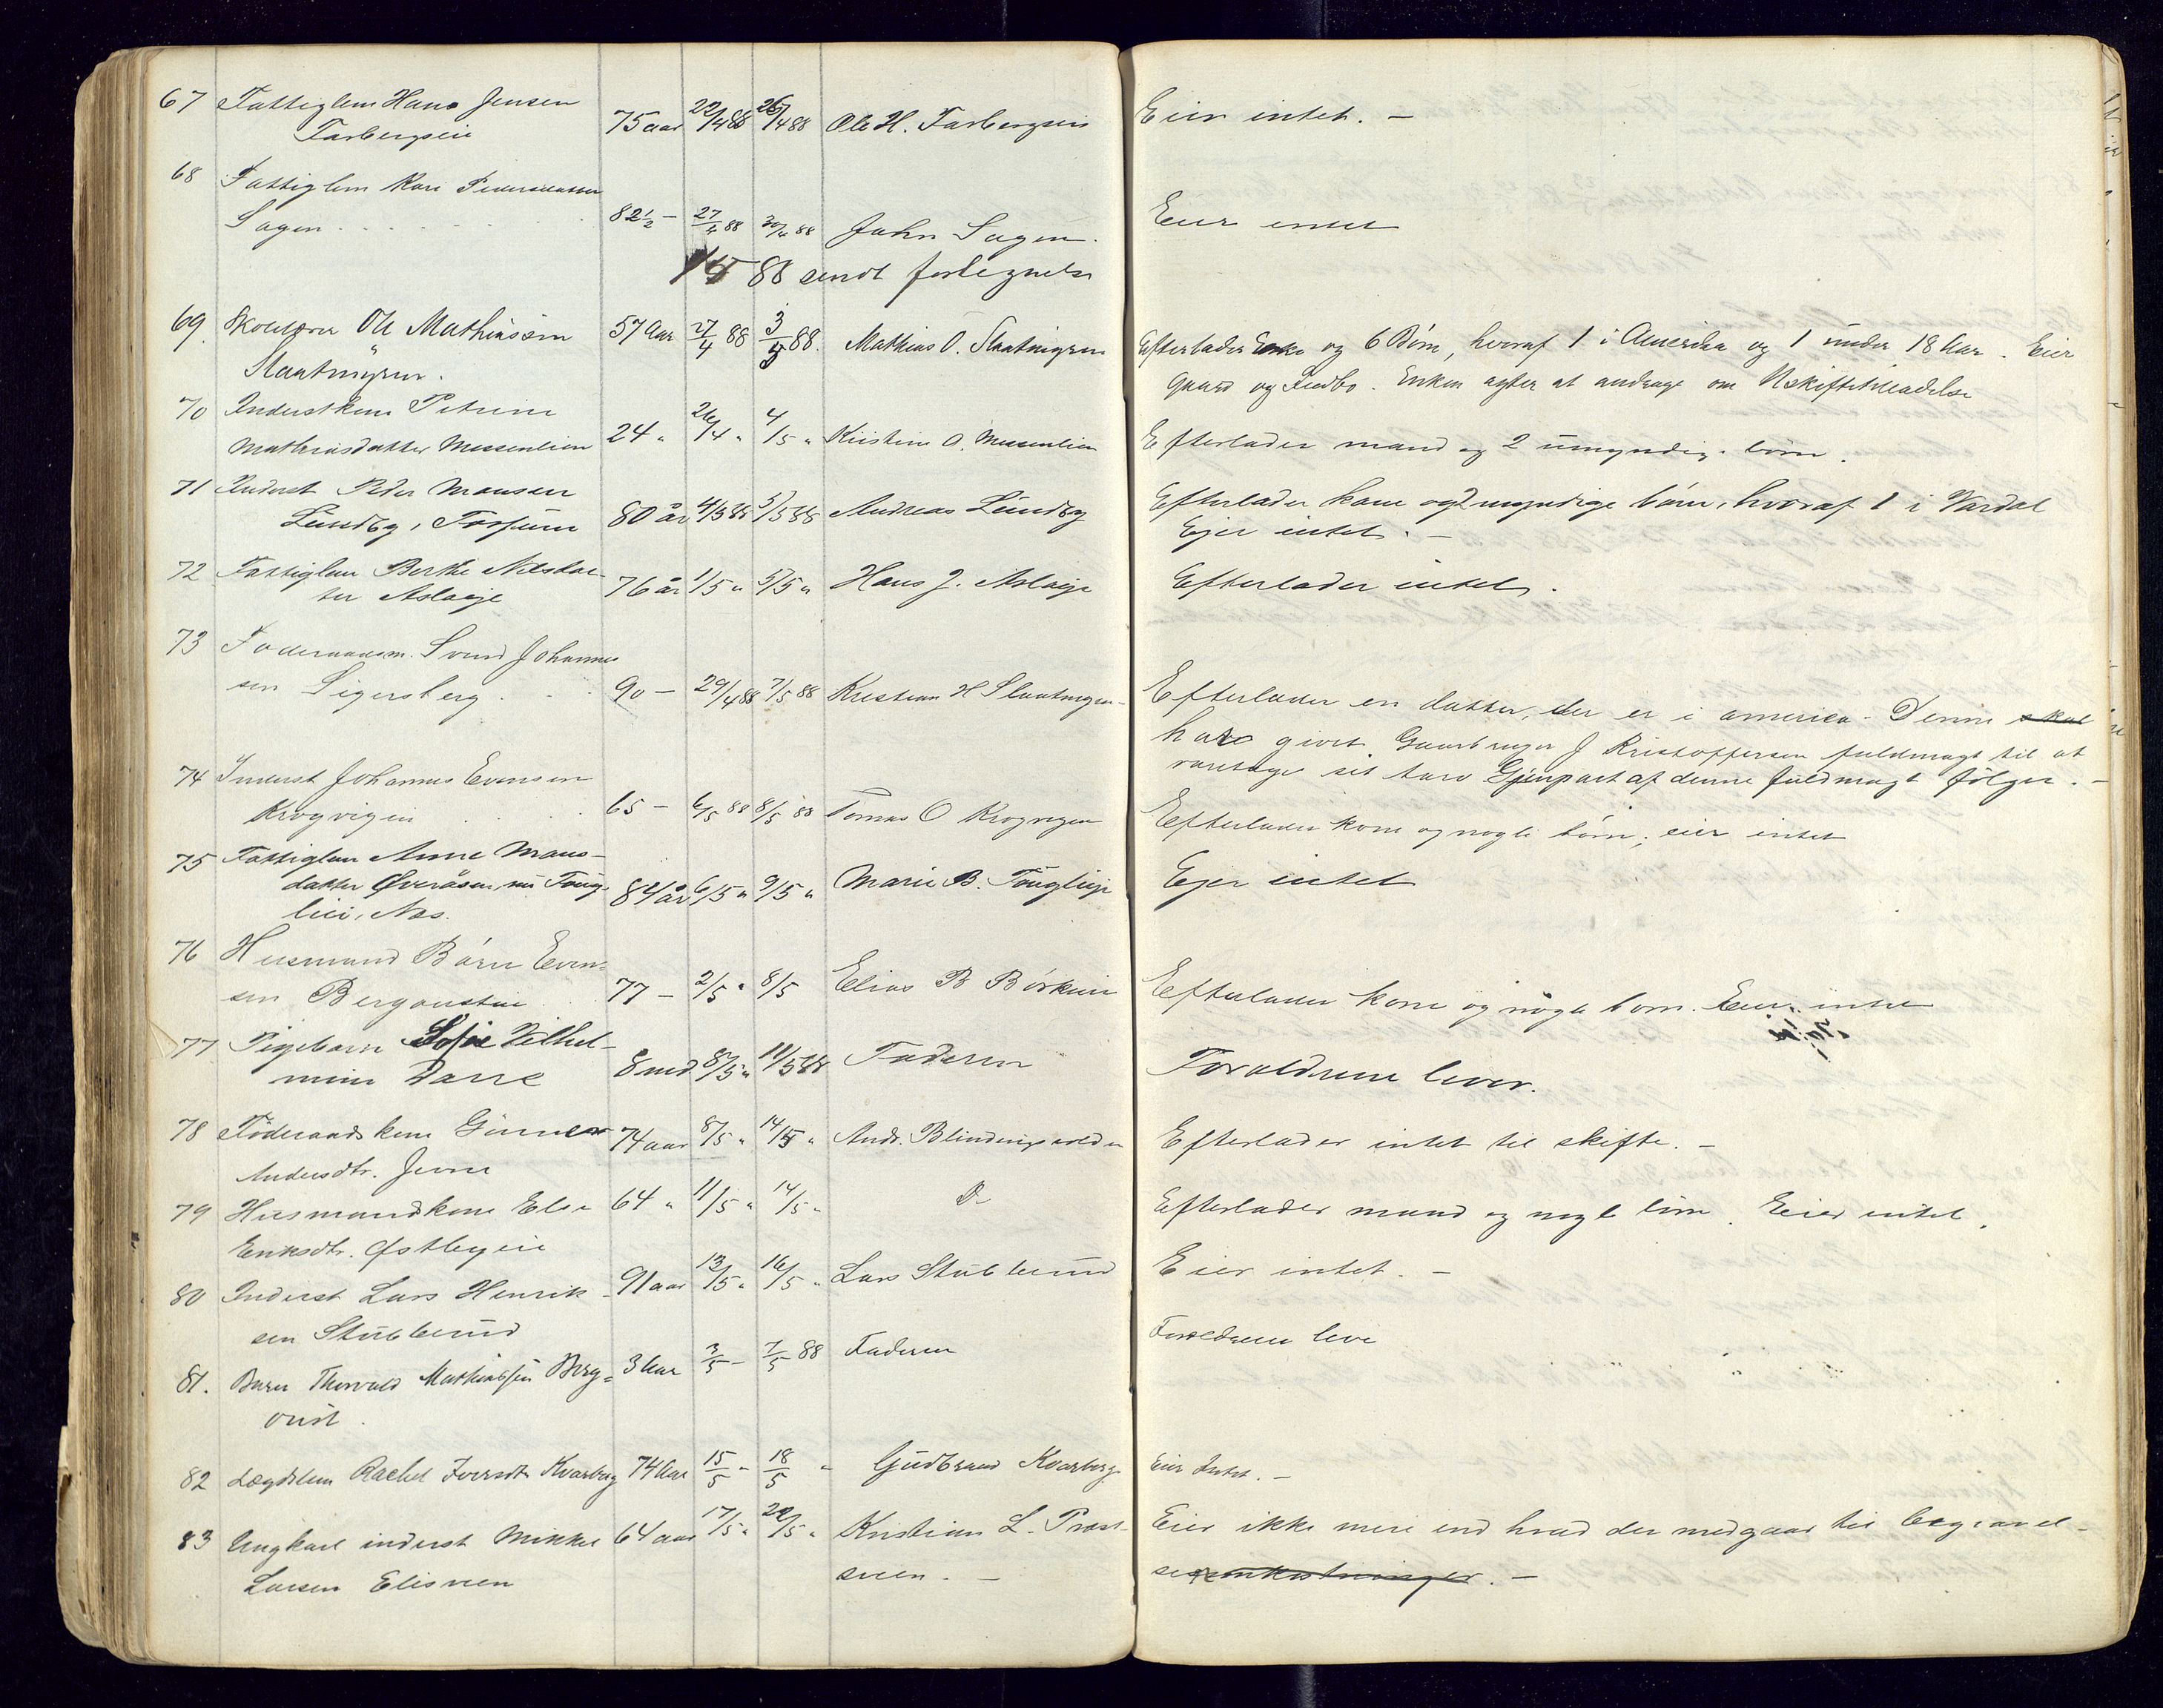 67 Fattiglem Hans Jensen
Farbergseie 75 aar 22/4 88 26/4 88 Ole H. Farbergseie Eier intet. —
68 Fattiglem Kari Pedersdatter
Sagen 82½ — 27/4 88 30/4 88 John Sagen. Eier intet
88 sendt fortegnelse
69. Ole Mathiassen 57 Aar 27/4 88 3/5 88. Mathias O. Slaatmyren Efterlader Enke og 6 Børn, hvoraf 1 i Amerika og 1 under 18 Aar. Eier
Slaatmyren. Gaard og Indbo. Enken agter at andrage om Uskiftetilladelse
70 Inderstkone Petrine
Mathiasdatter Messenlien 24 " 26/4 " 4/5 " Kristian O. Messenlien Efterlader mand og 2 umyndige børn.
71 Inderst Peder Monsen
Lundby, Forsum 80 år 4/5 88 5/5 88 Andreas Lundby Efterlader kone og 2 myndige børn, hvoraf 1 i Vardal
Ejer intet. —
72 Fattiglem Berthe Nilsdat-
ter Aslaeje 76 år 1/5 " 5/5 " Hans J. Aslaeje Efterlader intet.
73 Foderaadsm. Svend Johannes
sen Sigersberg 90 — 29/4 88 7/5 88 Kristian H Slaatmyren Efterlader en datter, der er i america. Denne skal
have givet Gaardbruger J Kristoffersen fuldmagt til at
varetage sit tarv Gjenpart af denne fuldmagt følger. —
74 Inderst Johannes Evensen
Krogvigen 65 — 6/5 88 8/5 88 Tomas O Krogvigen Efterlader kone og nogle børn; eier intet
75 Fattiglem Anne Mons-
datter Øveråsen nu
Nes. 84 år 6/5 " 9/5 " Marie B. Ejer intet
76 Husmand Børre Even-
sen Bergausteie 77 — 2/5 " 8/5 Elias B Børkeeie Efterlader kone og nogle børn. Eier intet
77 Pigebarn Sofie Vilhel-
mine Darre 8 md 8/5 " 11/5 88 Faderen Forældrene lever.
78 Føderaadskone
Andersdtr. Jevne 74 aar 8/5 " 14/5 " Andr. Efterlader intet til skifte. —
79 Husmandskone Else 64 " 11/5 " 14/5 " Do Efterlader mand og nogle børn. Eier intet.
Eriksdtr. Østbyeie
80 Inderst Lars Henrik- 91 aar 13/5 " 16/5 " Lars Stubberud Eier intet. —
sen Stubberud
81. Barn Thorvald Mathiassen Berg- 3 Aar 3/5 — 7/5 88 Faderen Forældrene leve
oust.
82 Lægdslem Rachel Iversdtr Kvarberg 74 Aar 15/5 — 18/5 " Gudbrand Kvarberg Eier Intet. —
83 Ungkarl inderst Mikkel 64 aar 17/5 " 22/5 " Kristian L. Præst- Eier ikke mere end hvad der medgaar til begravel-
Larsen Elisveen sveen. — sesomkostninger. —